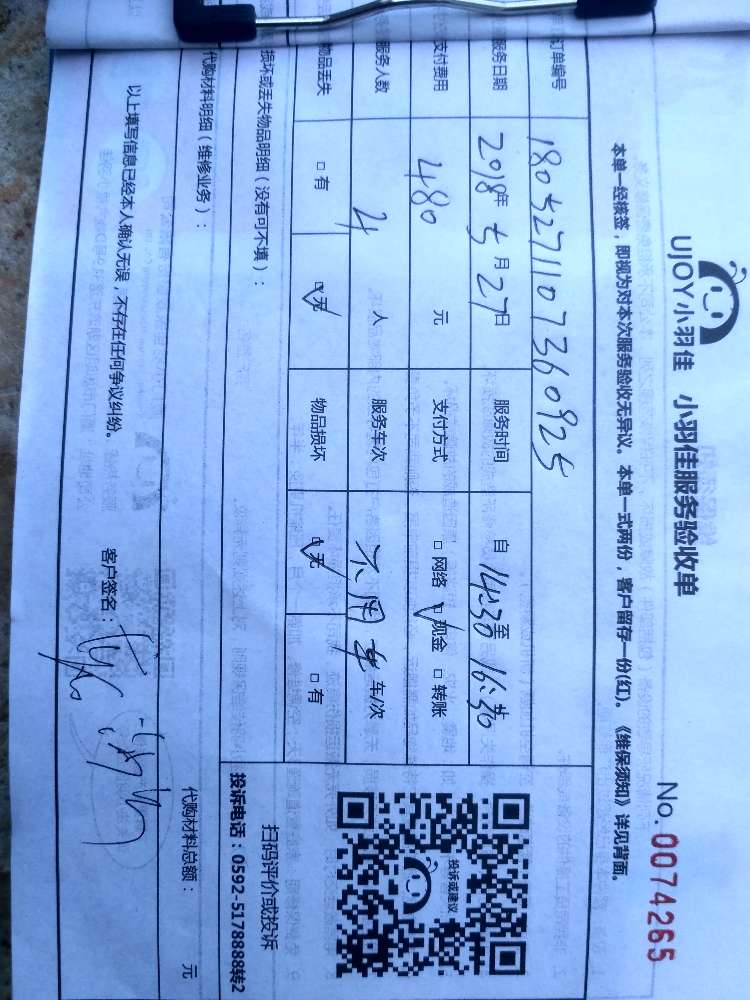 UJOY小羽佳 小羽佳服务验收单 No. 0074265
本单一经核签，即视为对本次服务验收无异议。本单一式两份，客户留存一份(红)。《维保须知》详见背面。
订单编号 1805271107360925
服务日期 2018年5月27日 服务时间 自14:30至16:30
支付费用 480 元 支付方式 □ 网络 ☑ 现金 □ 转账
服务人数 4 人 服务车次 不用车 车/次
物品丢失 □ 有 ☑ 无 物品损坏 ☑ 无 □ 有
投诉或建议
损坏或丢失物品明细（没有可不填）：
扫码评价或投诉
投诉电话：0592-5178888转2
代购材料明细（维修业务）：
代购材料总额： 元
以上填写信息已经本人确认无误，不存在任何争议纠纷。 客户签名：